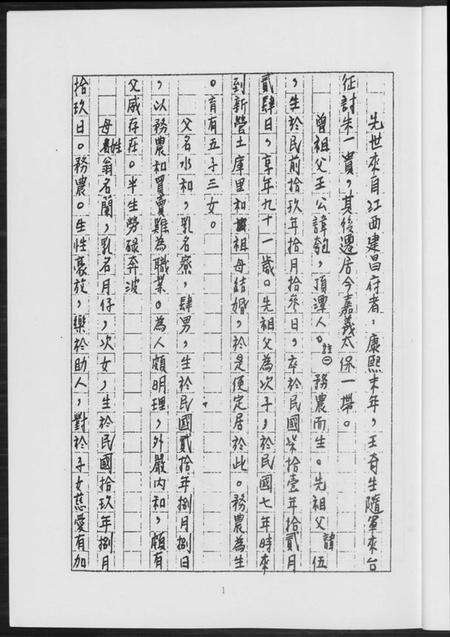 先世來自江西建昌府者，康熙末年，王奇生隨軍來台
征討朱一貴，其後遷居今嘉義太保一帶。
曾祖父王公諱，頂潭人。註㊀務農而生。先祖父諱伍
，生於民前拾玖年拾月拾參日，卒於民國柒拾壹年拾貳月
貳肆日，享年九十一歲。先祖父為次子，於民國七年時來
到新營土庫里和祖母結婚，於是便定居於此。務農為生
。育有五子三女。
父名水和，乳名察，肆男，生於民國貳拾年捌月捌日
，以務農和買賣雞為職業。為人頗明理，外嚴內和，頗有
父威存在。半生勞碌奔波
母姓翁名蘭，乳名月仔，次女，生於民國拾玖年捌月
拾玖日。務農。生性豪放，樂於助人，對於子女慈愛有加
1